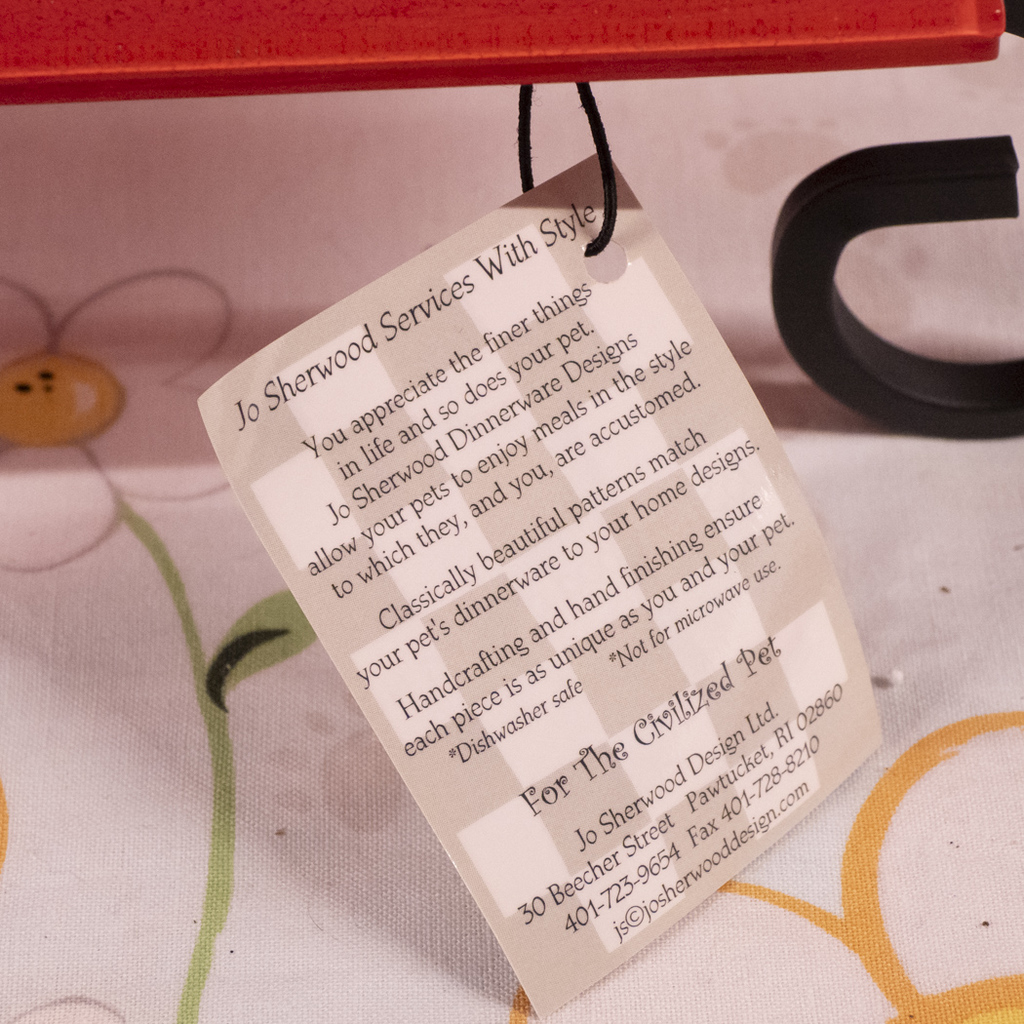 Jo Sherwood Services With Style
You appreciate the finer things
in life and so does your pet.
Jo Sherwood Dinnerware Designs
allow your pets to enjoy meals in the style
to which they, and you, are accustomed.
Classically beautiful patterns match
your pet's dinnerware to your home designs.
Handcrafting and hand finishing ensure
each piece is as unique as you and your pet.
*Dishwasher safe *Not for microwave use.
For The Civilized Pet
Jo Sherwood Design Ltd.
30 Beecher Street Pawtucket, RI 02860
401-723-9654 Fax 401-728-8210
js©josherwooddesign.com